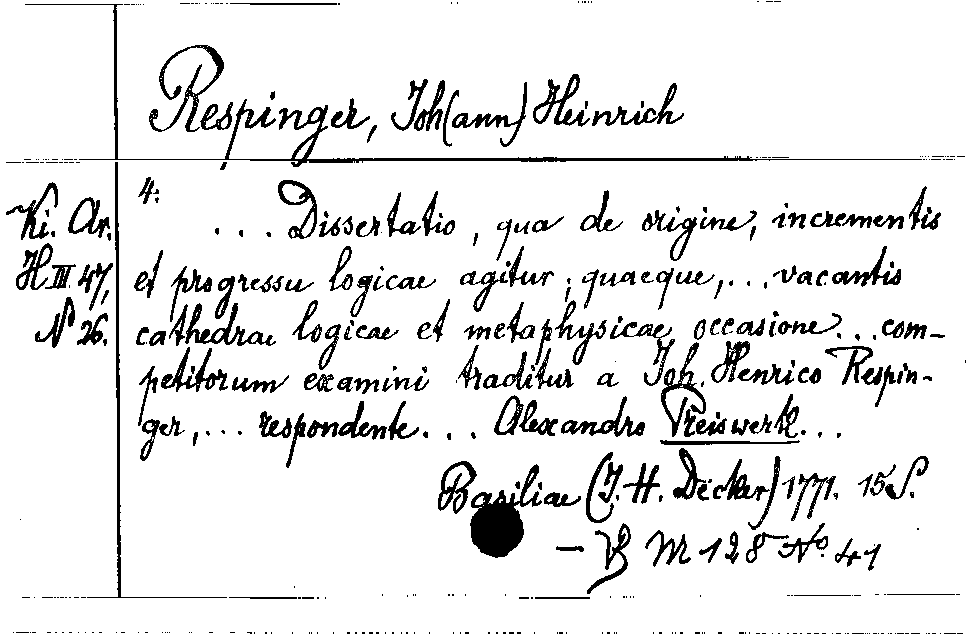 Respinger, Joh(ann) Heinrich
Ki. Ar.
H III 47,
N° 26.
4:
... Dissertatio, qua de origine, incrementis
et progressu logicae agitur; quaeque,... vacantis
cathedrae logicae et metaphysicae occasione... com-
petitorum examini traditur a Joh. Henrico Respin-
ger,... respondente... Alexandro Preiswerk...
Basiliae (J. H. Decker) 1771. 15 S.
— VB M 128 No. 41